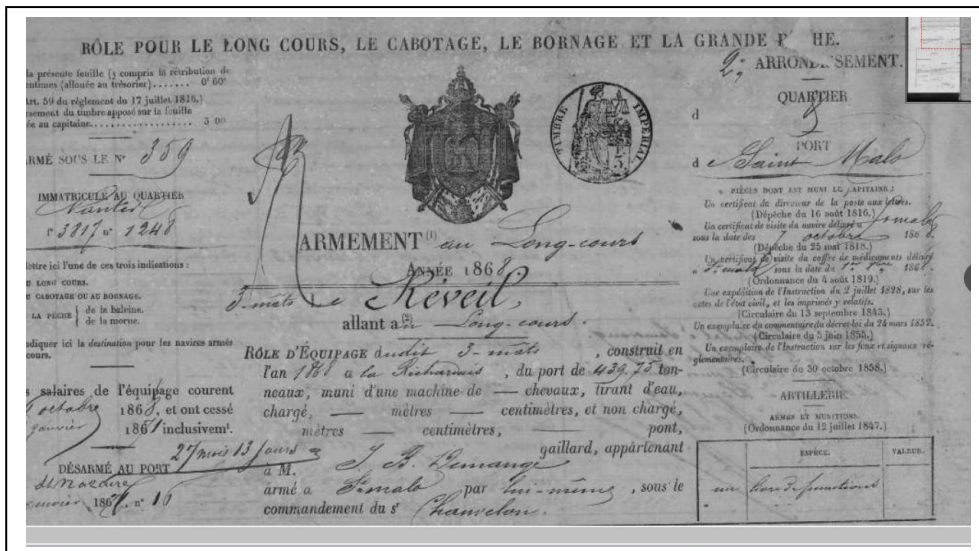 RÔLE POUR LE LONG COURS, LE CABOTAGE, LE BORNAGE ET LA GRANDE P HE.
la présente feuille (y compris la rétribution de
entimes (allouée au trésorier)....... 0f 60c
Art. 59 du règlement du 17 juillet 1816.)
rsement du timbre apposé sur la feuille
ée au capitaine................. 3 00
ARMÉ SOUS LE N° 359
IMMATRICULÉ AU QUARTIER
Nantes
f° 3817 n° 1248
ettre ici l'une de ces trois indications :
U LONG COURS.
U CABOTAGE OU AU BORNAGE.
LA PÊCHE { de la baleine.
de la morue.
ndiquer ici la destination pour les navires armés
cours.
s salaires de l'équipage courent
octobre 1868, et ont cessé
janvier 1861 inclusivemt.
27 mois 13 jours
DÉSARMÉ AU PORT
St Nazaire
janvier 187 , n° 16
TIMBRE IMPÉRIAL
ARMEMENT (1) au Long-cours
ANNÉE 1868
3-mats le Réveil,
allant a(2)u Long-cours.
RÔLE D'ÉQUIPAGE dudit 3-mats , construit en
l'an 1868 a la Richardais , du port de 439,75 ton-
neaux, muni d'une machine de — chevaux, tirant d'eau,
chargé, — mètres — centimètres, et non chargé,
mètres — centimètres, — pont,
gaillard, appartenant
à M. J. B. Demange
armé a St malo par lui-même , sous le
commandement du sr
2e ARRONDISSEMENT.
QUARTIER
d
PORT
d e Saint Malo
PIÈCES DONT EST MUNI LE CAPITAINE :
Un certificat de directeur de la poste aux lettres.
(Dépêche du 16 août 1816.)
Un certificat de visite du navire délivré a St malo
sous la date des 7 octobre 1868
(Dépêche du 25 mai 1818.)
Un certificat de visite du coffre de médicaments délivré
a St malo sous la date du 1er 1868.
(Ordonnance du 4 août 1819.)
Une expédition de l'Instruction du 2 juillet 1828, sur les
actes de l'état civil, et les imprimés y relatifs.
(Circulaire du 13 septembre 1843.)
Un exemplaire du commentaire du décret-loi du 24 mars 1852.
(Circulaire du 5 juin 1855.)
Un exemplaire de l'Instruction sur les feux et signaux ré-
glementaires.
(Circulaire du 30 octobre 1858.)
ARTILLERIE
ARMES ET MUNITIONS.
(Ordonnance du 12 juillet 1847.)
ESPÈCE. VALEUR.
un